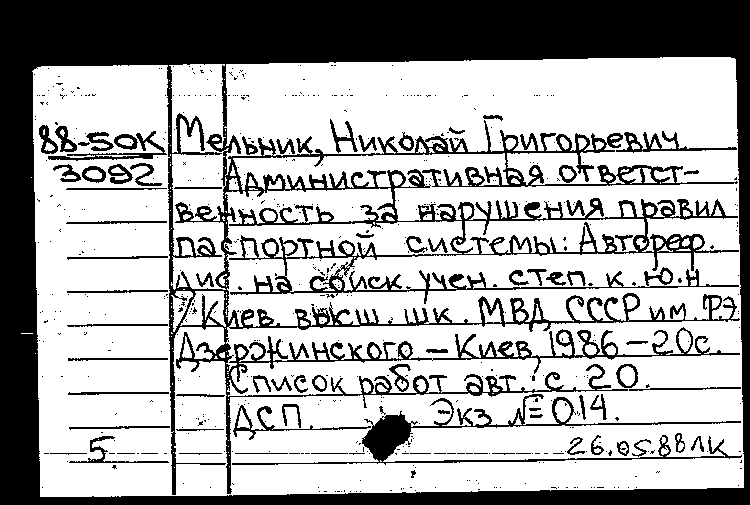 88-50К Мельник, Николай Григорьевич
3092 Административная ответст-
венность за нарушения правил
паспортной системы: Автореф.
дис. на соиск. учен. степ. к.ю.н.
/ Киев. высш. шк. МВД СССР им. Ф.Э.
Дзержинского – Киев, 1986 – 20с.
Список работ авт.: с. 20.
ДСП. Экз №014.
5. 26.05.88 ЛК